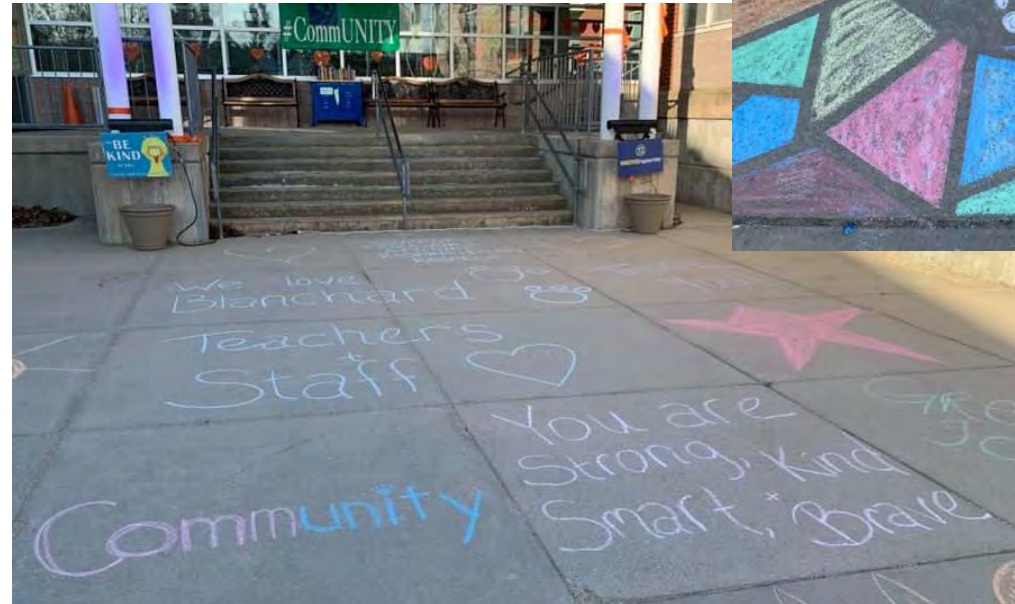 #CommUNITY
BE
KIND
We love
Blanchard
Teachers
+
Staff
You are
Strong, Kind
Smart, + Brave
Community